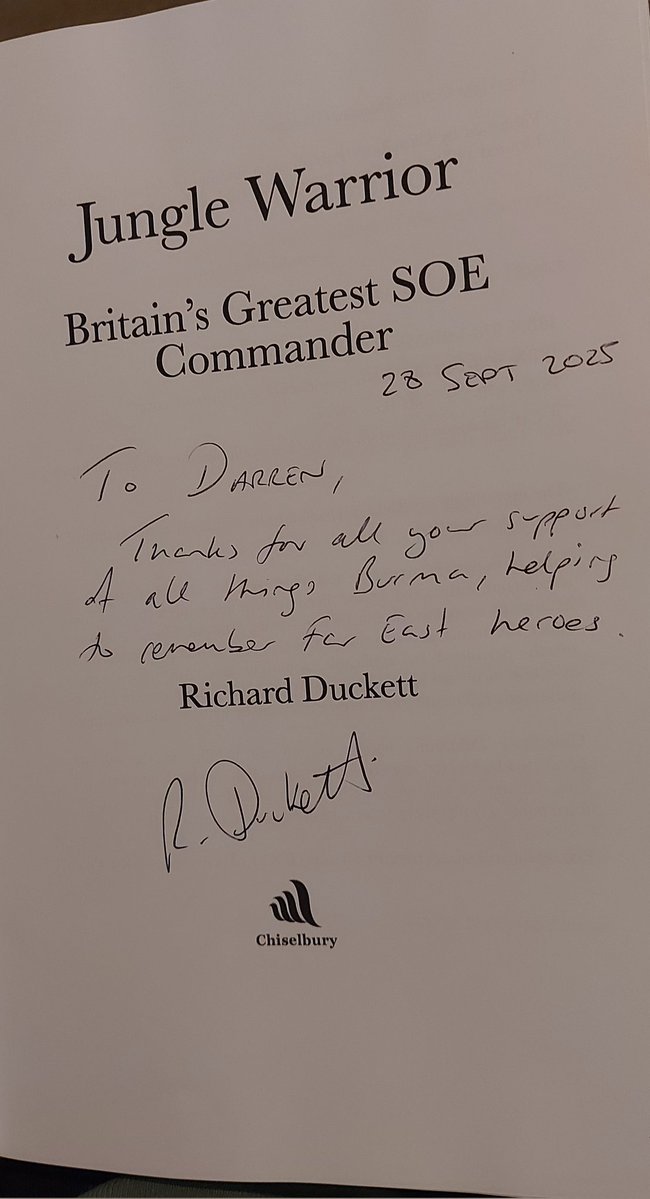 Jungle Warrior
Britain's Greatest SOE
Commander
28 SEPT 2025
To DARREN,
Thanks for all your support
of all things Burma, helping
to remember Far East heroes.
Richard Duckett
R. Duckett.
Chiselbury